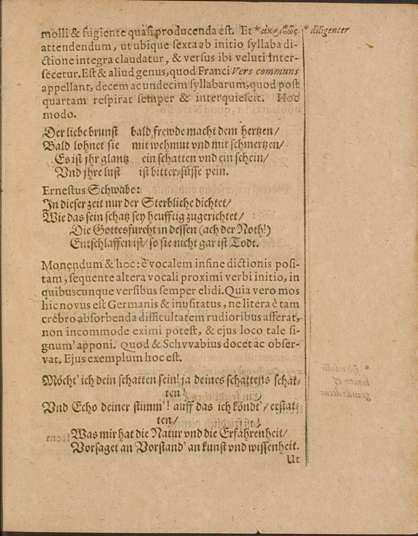 molli & fugiente quasi producenda est. Et *
* diligenter
attendendum, ut ubique sexta ab initio syllaba di-
ctione integra claudatur, & versus ibi veluti inter-
secetur. Est & aliud genus, quod Franci Vers communs
appellant, decem ac undecim syllabarum, quod post
quartam respirat semper & interquiescit. Hoc
modo.
Der liebe brunst bald frewde macht dem hertzen/
Bald lohnet sie mit wehmut vnd mit schmertzen/
Es ist jhr glantz ein schatten vnd ein schein/
Vnd jhre lust ist bittersüsse pein.
Ernestus Schwabe:
In dieser zeit nur der Sterbliche dichtet/
Wie das sein schatz sey heuffig zugerichtet/
Die Gottesfurcht in dessen (ach der Noth!)
Entschlaffen ist/ so sie nicht gar ist Todt.
Monendum & hoc: è vocalem in fine dictionis posi-
tam, sequente altera vocali proximi verbi initio, in
quibuscunque versibus semper elidi. Quia vero mos
hic novus est Germanis & inusitatus, ne litera è tam
crebro absorbenda difficultatem rudioribus afferat,
non incommode eximi potest, & ejus loco tale si-
gnum' apponi. Quod & Schvvabius docet ac obser-
vat. Ejus exemplum hoc est.
Möcht' ich dein schatten sein! ja deines schattens schat-
ten!
Vnd Echo deiner stimm'! auff das ich köndt'/ erstat-
ten/
Was mir hat die Natur vnd die Erfahrenheit/
Vorsaget an Vorstand' an kunst vnd wissenheit.
Ut